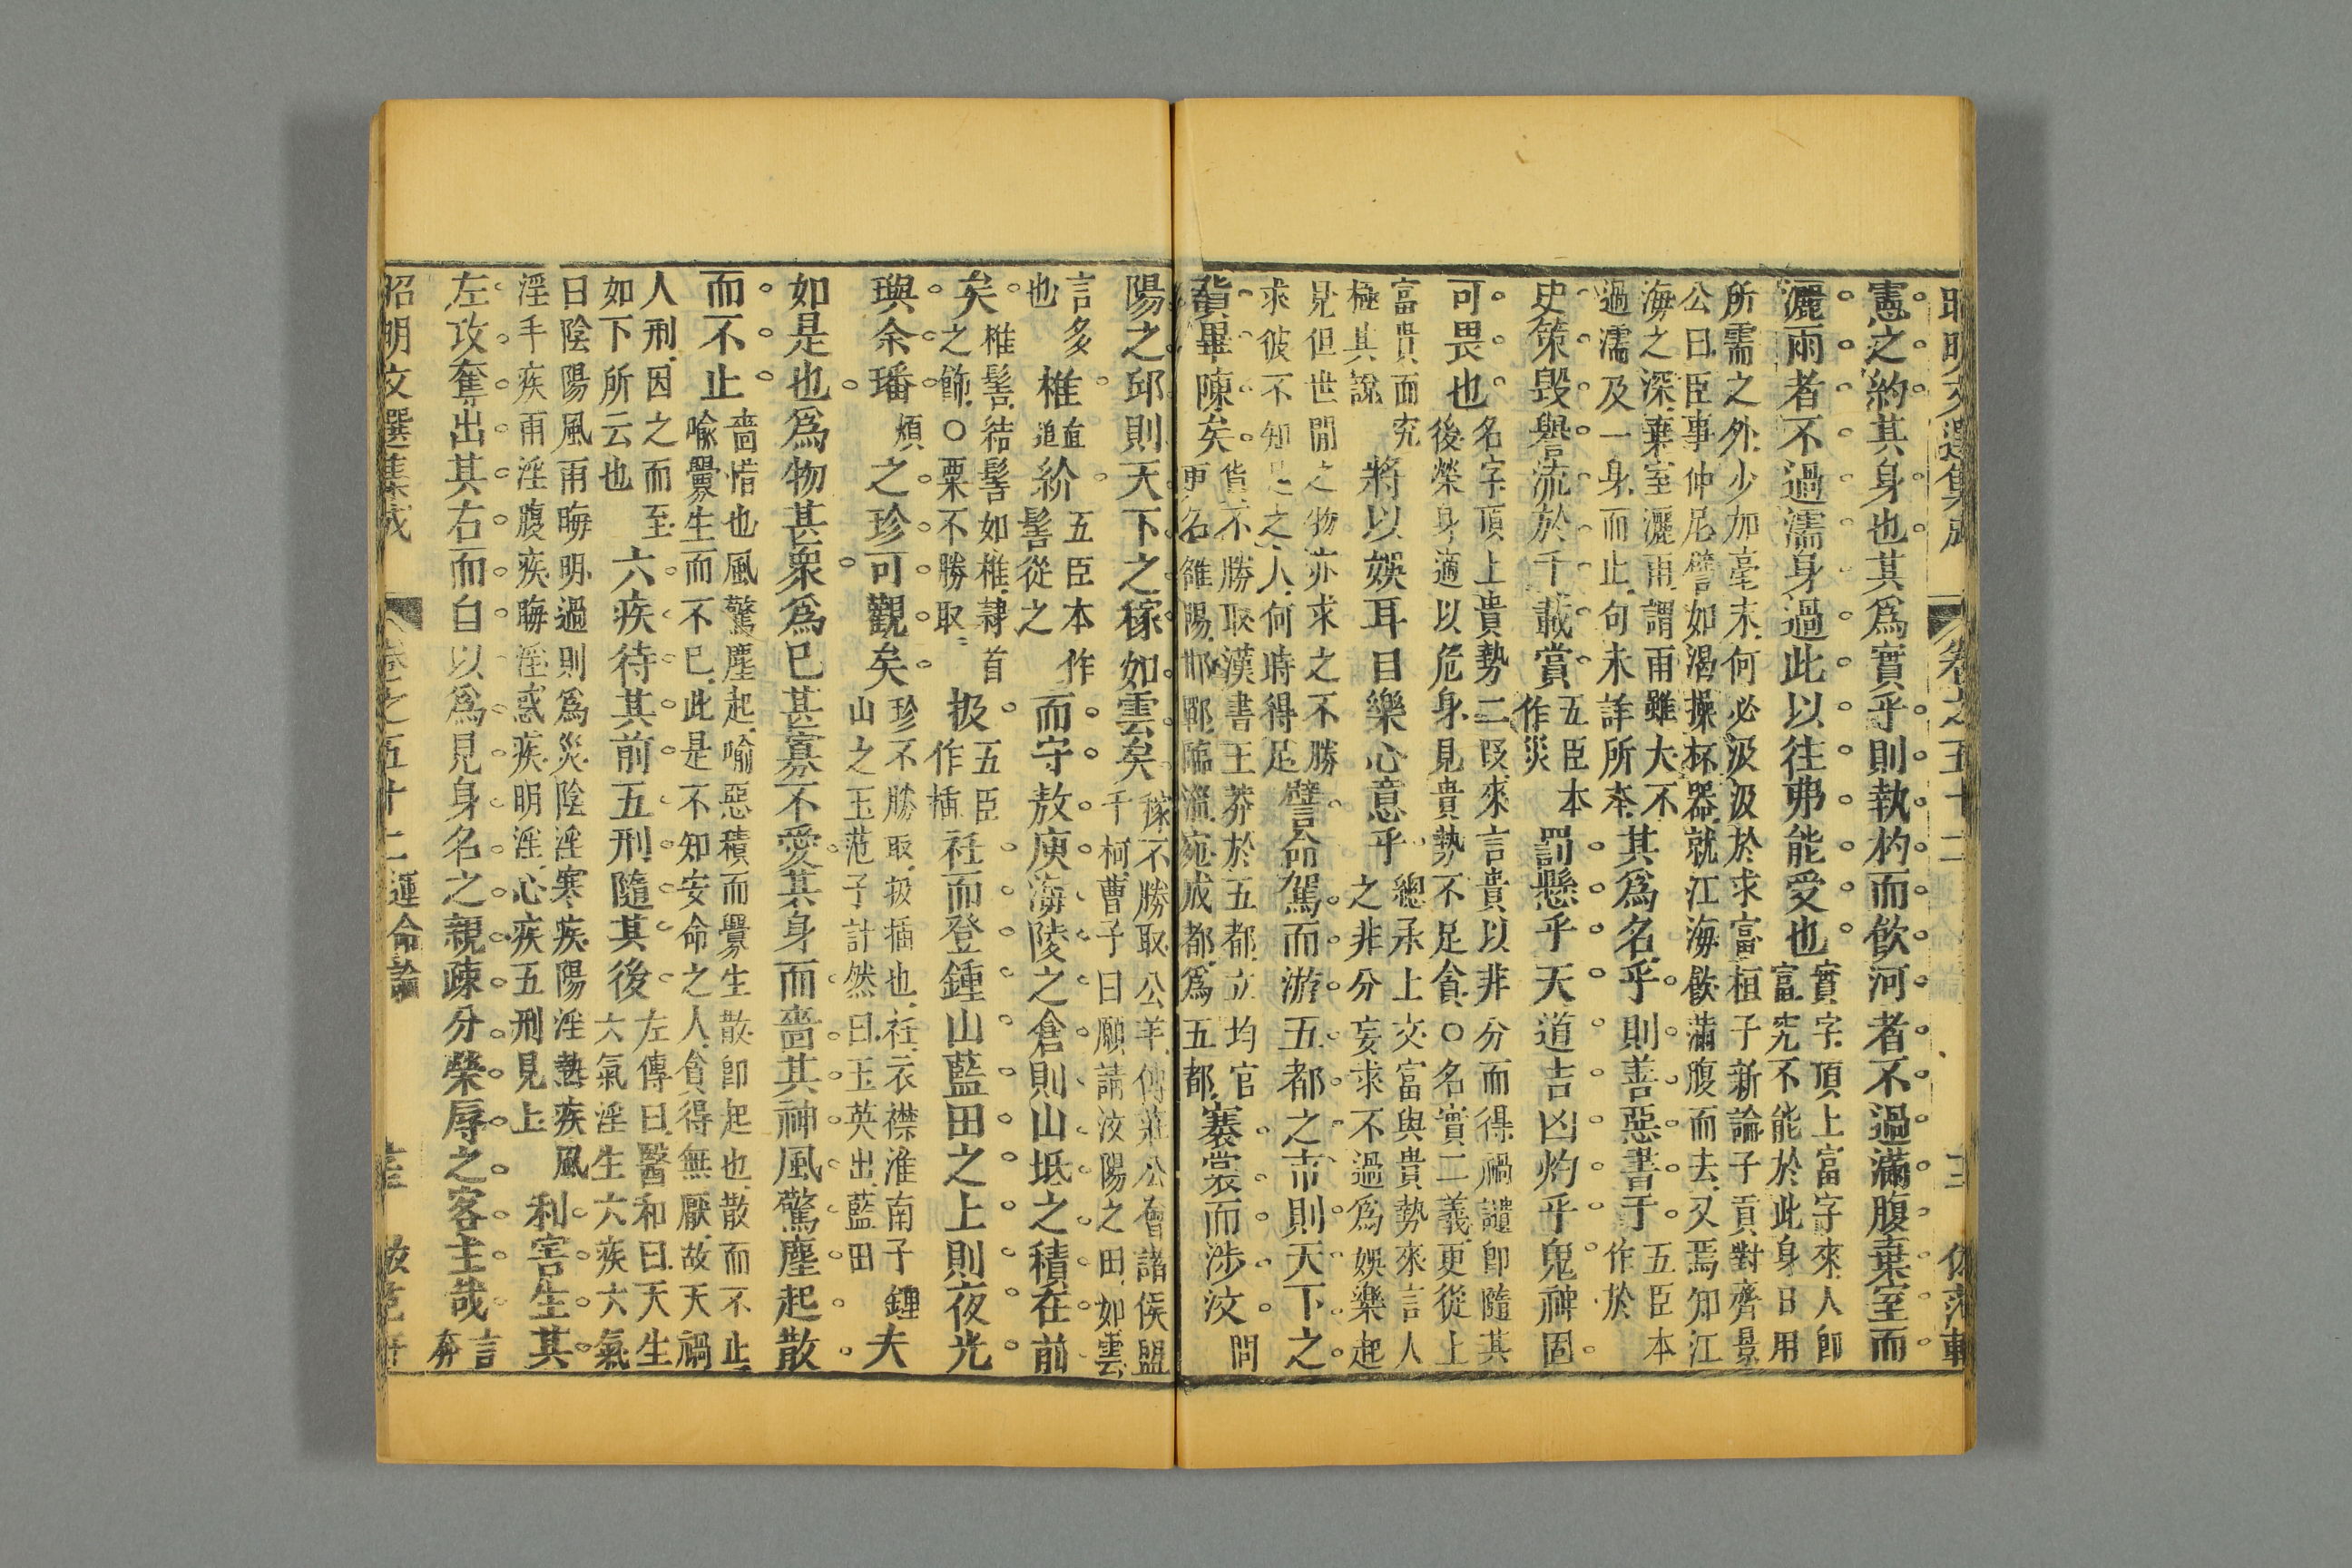 昭明文選集成 卷之五十二 運命論 三 仿范軒
憲之約其身也其爲實乎則執杓而飲河者不過滿腹棄室而
灑雨者不過濡身過此以往弗能受也 實字頂上富字來人卽富究不能於此身日用
所需之外少加毫末何必汲汲於求富桓子新論子貢對齊景
公曰臣事仲尼譬如渴操杯器就江海飲滿腹而去又焉知江
海之深棄室灑雨謂雨雖大不過濡及一身而止句未詳所本 其爲名乎則善惡書于 五臣本作於
史策毀譽流於千載賞 五臣本作災 罰懸乎天道吉凶灼乎鬼神固
可畏也 名字頂上貴勢二段來言貴以非分而得禍譴卽隨其後榮身適以危身見貴勢不足貪○名實二義更從上
富貴而究極其說 將以娛耳目樂心意乎 總承上文富與貴勢來言人之非分妄求不過爲娛樂起
見但世間之物亦求之不勝求彼不知足之人何時得足 譬命駕而游五都之市則天下之
貨畢陳矣 貨不勝取漢書王莽於五都立均官更名雒陽邯鄲臨淄宛成都爲五都 褰裳而涉汶 問
陽之邱則天下之稼如雲矣 稼不勝取公羊傳莊公會諸侯盟于柯曹子曰願請汶陽之田如雲
言多也 椎 直追 紒 五臣本作髻從之 而守敖庾海陵之倉則山坻之積在前
矣 椎髻結髻如椎隷首之飾○栗不勝取 扱 五臣作插 衽而登鍾山藍田之上則夜光
璵余璠 煩 之珍可觀矣 珍不勝取扱插也衽衣襟淮南子鍾山之玉范子計然曰玉英出藍田 夫
如是也爲物甚衆爲已甚寡不愛其身而嗇其神風驚塵起散
而不止 嗇惜也風驚塵起喻惡積而釁生散卽起也散而不止喻釁生而不已此是不知安命之人貪得無厭故天禍
人刑因之而至如下所云也 六疾待其前五刑隨其後 左傳曰醫和曰天生六氣淫生六疾六氣
曰陰陽風雨晦明過則爲災陰淫寒疾陽淫熱疾風淫手疾雨淫腹疾晦淫惑疾明淫心疾五刑見上 利害生其
左攻奪出其右而自以爲見身名之親疎分榮辱之客主哉 言奔
昭明文選集成 卷之五十二 運命論